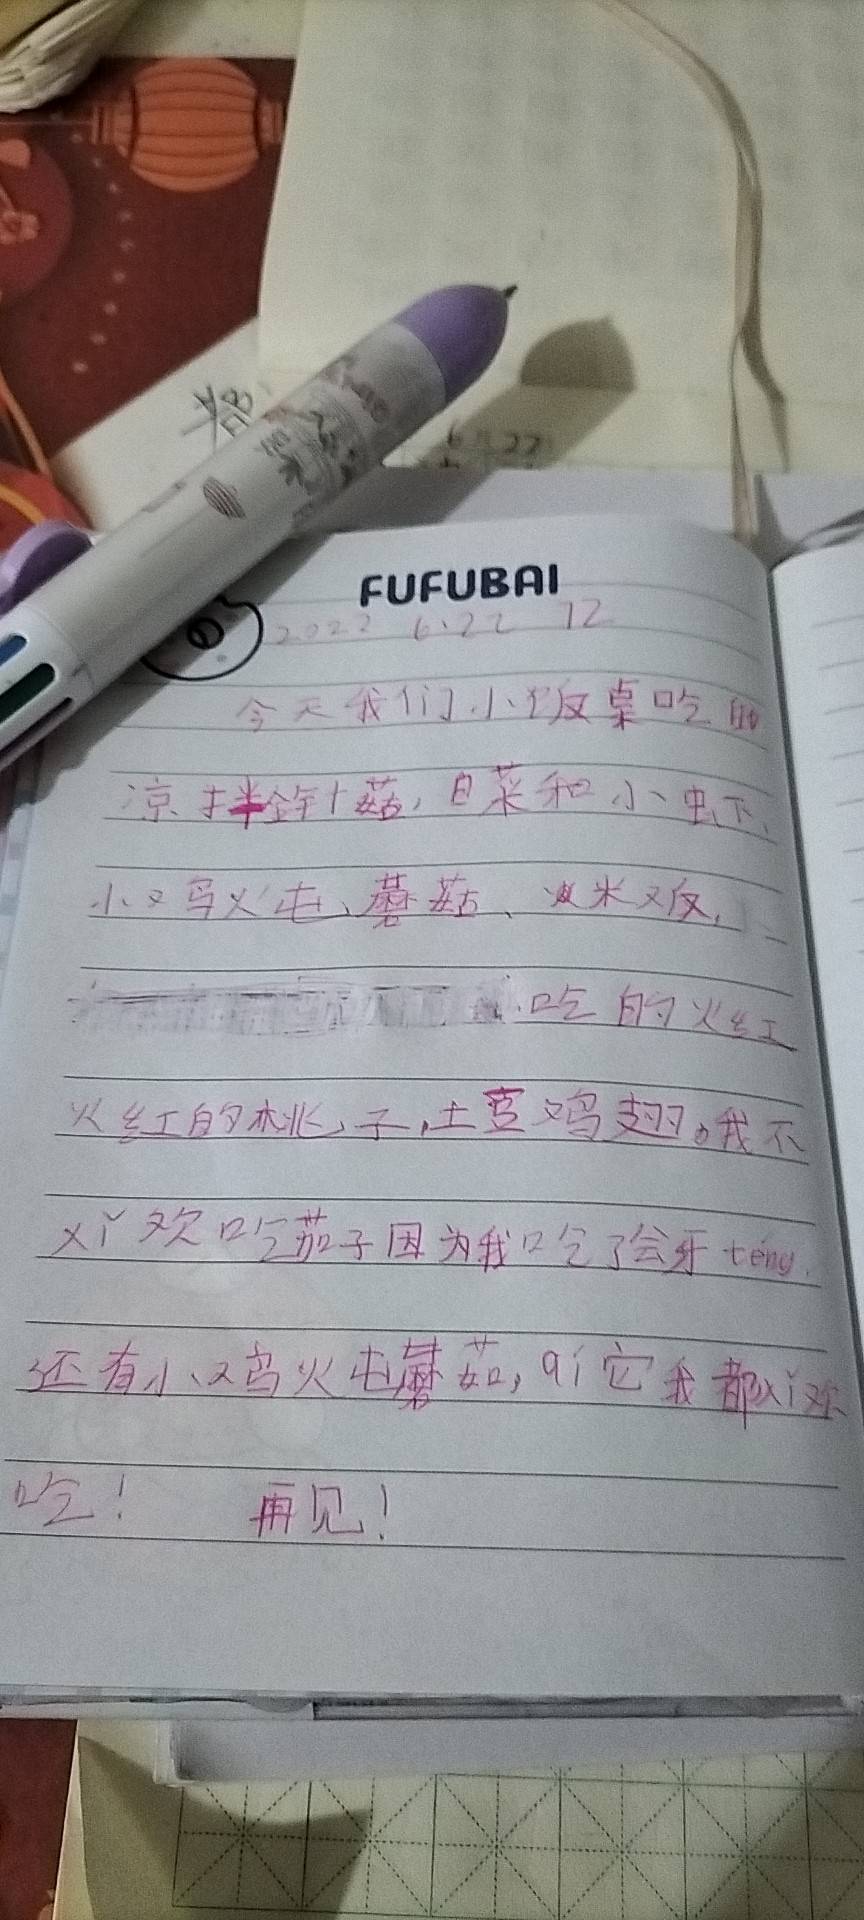 FUFUBAI
2022 6.22 12
今天我们小饭桌吃的
凉拌金针菇,白菜和小虫下、
小鸡火屯、蘑菇、米饭,
吃的火红
火红的桃子,土豆鸡翅。我不
xǐ欢吃茄子因为我吃了会牙téng.
还有小鸡火屯蘑茹,qí它我都xǐ欢
吃! 再见!